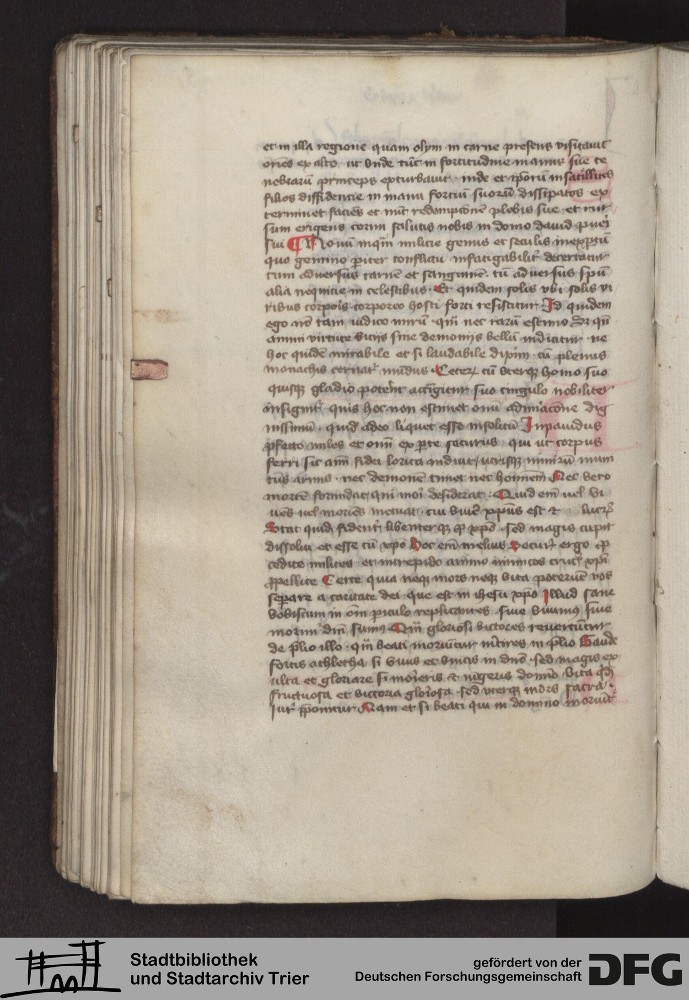 et in illa regione quam olym in carne presens visitavit
oriēs ex alto · ut unde tūc in fortitudine manus sue te
nebrarū principes exturbavit · inde et ipōrū insatellites
filios diffidencie in manu fortiū suorū dissipatos ex
terminet faciēs et nūc redempcionē plebis sue · et rur
sum erigens cornu salutis nobis in domo david pueri
sui Novū inquā milicie genus et seculis inexptū
quo gemino pariter conflictu infatigabilit̄ decertatur
tum adversus carnē et sanguinē · tū adversus spū
alia nequicie in celestibus · Et quidem solis ubi solis vi
ribus corporis corporeo hosti forti resistitur Id quidem
ego nō tam iudico mirū · qm̄ nec rarū estimo Sz qn̄
animi virtute vicijs sive demonijs bellū indicitur · ne
hoc quidē mirabile et si laudabile dixim̄ · cū plenus
monachis cernat̄ mūdus · Ceterū cū uterque homo suo
quisque gladio potent̄ accingitur suo cingulo nobiliter
insignit̄ · quis hoc non estimet omī admiracōne dig
nissimū · quid adeo liquet esse insolitū Inpavidus
pfecto miles et omī ex pte securus · qui ut corpus
ferri sic aīm fidei lorica induit̄ · utrisque nimirū muni
tus armis · nec demonē timet nec hominem Nec vero
mortē formidat · qui mori desiderat · Quid enī vel vi
vēs vel moriēs metuat · cui vivē xp̄us est et lucrū
Stat quidē fident̄ libenterque p xp̄o · sed magis cupit
dissolvi et esse cū xp̄o Hoc enī melius Securi ergo p
cedite milites · et intrepido animo inimicos crucis xp̄i
ppellite Certe quia neque mors neque vita poterūt vos
separare a caritate dei · que est in ihesu xp̄o Illud sane
vobiscum in om̄i piculo replicantes · sive vivimus sive
morim̄ dn̄i sumus Qm̄ gloriosi victores revertūtur
de plio illo · qm̄ beati moriūtur mr̄tires in plio Gaude
fortis athletha si vivis et vincis in dn̄o · sed magis ex
ulta et gloriare si moreris et iūgeris domīo Vita qdē
fructuosa et victoria gloriosa · sed utrique mors sacra
iur̄ pponitur Nam et si beati qui in domino moriūt̄
Stadtbibliothek
und Stadtarchiv Trier
gefördert von der
Deutschen Forschungsgemeinschaft
DFG